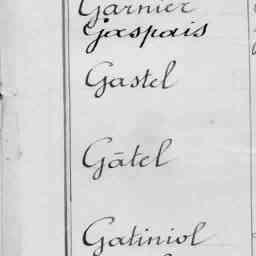 Garnier
Gaspais
Gastel
Gâtel
Gatiniol